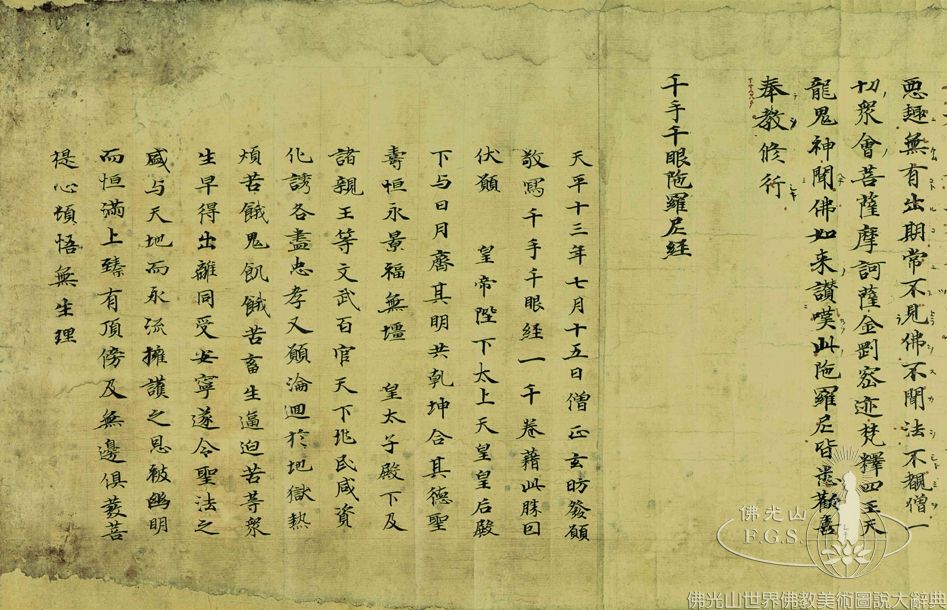 惡趣無有出期常不見佛不聞法不覩僧一
切衆會菩薩摩訶薩金剛密迹梵釋四王天
龍鬼神聞佛如来讃嘆此陁羅尼皆悉歡喜
奉教修行
千手千眼陁羅尼経
天平十三年七月十五日僧正玄昉發願
敬寫千手千眼経一千卷藉此勝因
伏願 皇帝陛下太上天皇皇后殿
下与日月齋其明共乾坤合其德聖
壽恒永景福無壃 皇太子殿下及
諸親王等文武百官天下兆民咸資
化誘各盡忠孝又願淪迴於地獄熱
煩苦餓鬼飢餓苦畜生逼迫苦等衆
生早得出離同受安寧遂令聖法之
盛与天地而永流擁護之恩被幽明
而恒滿上臻有頂傍及無邊俱發菩
提心頓悟無生理
佛光山
F.G.S.
佛光山世界佛教美術圖說大辭典